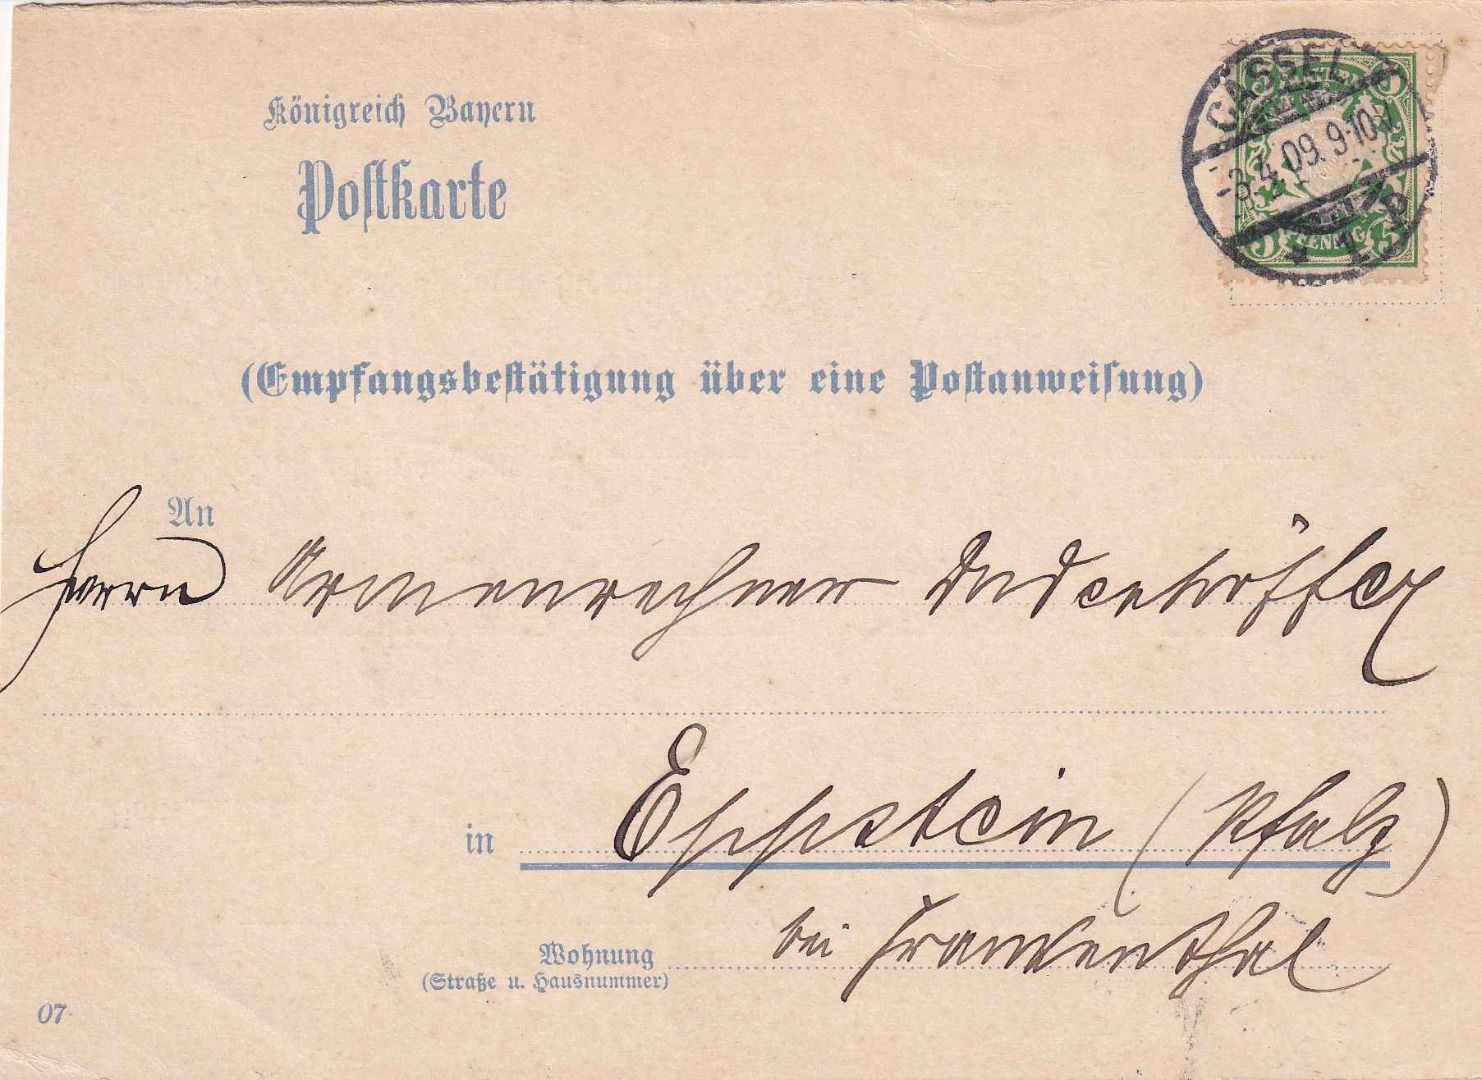 Königreich Bayern
Postkarte
CASSEL
-3.4.09. 9-10
* 1
5 PFENNIG 5
(Empfangsbestätigung über eine Postanweisung)
An
Herrn Armenrechner
in Eppstein (Pfalz)
bei Frankenthal
Wohnung
(Straße u. Hausnummer)
07